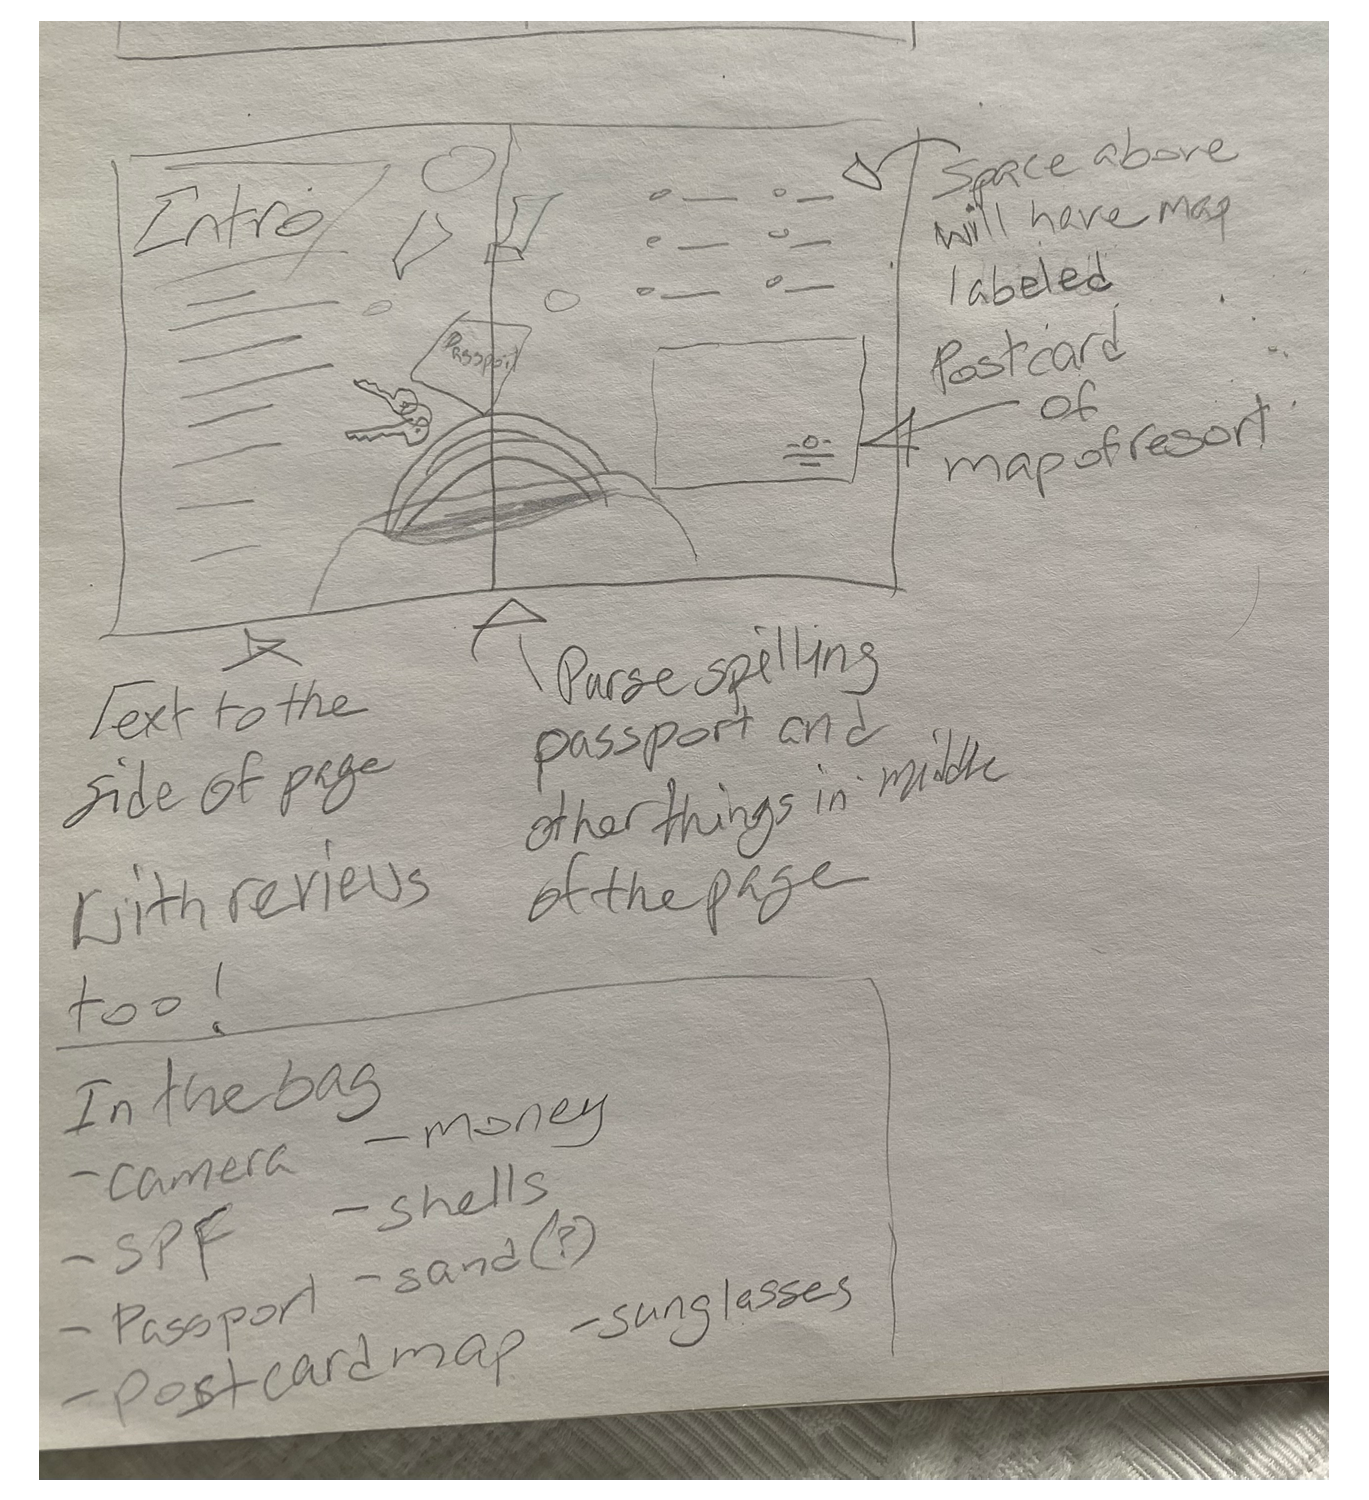 Intro
Passport
Space above
will have map
labeled
Postcard
of
map of resort
Text to the
side of page
With reviews
too!
Purse spilling
passport and
other things in middle
of the page
In the bag
- camera - money
- SPF - shells
- Passport - sand (?)
- Postcard map - sunglasses